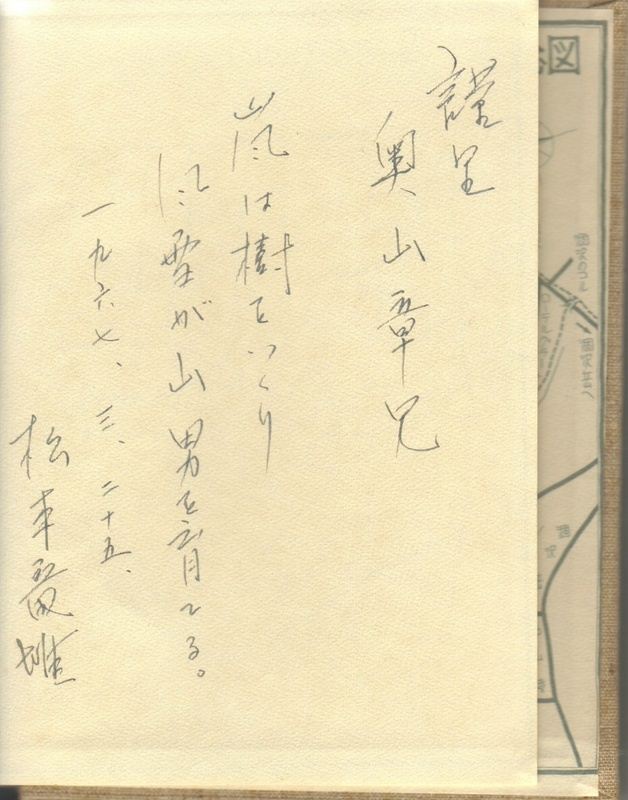 謹呈
奥山章兄
嵐は樹をつくり
風雪が山男を育てる。
一九六七、三、二十五、
松本
雄
図